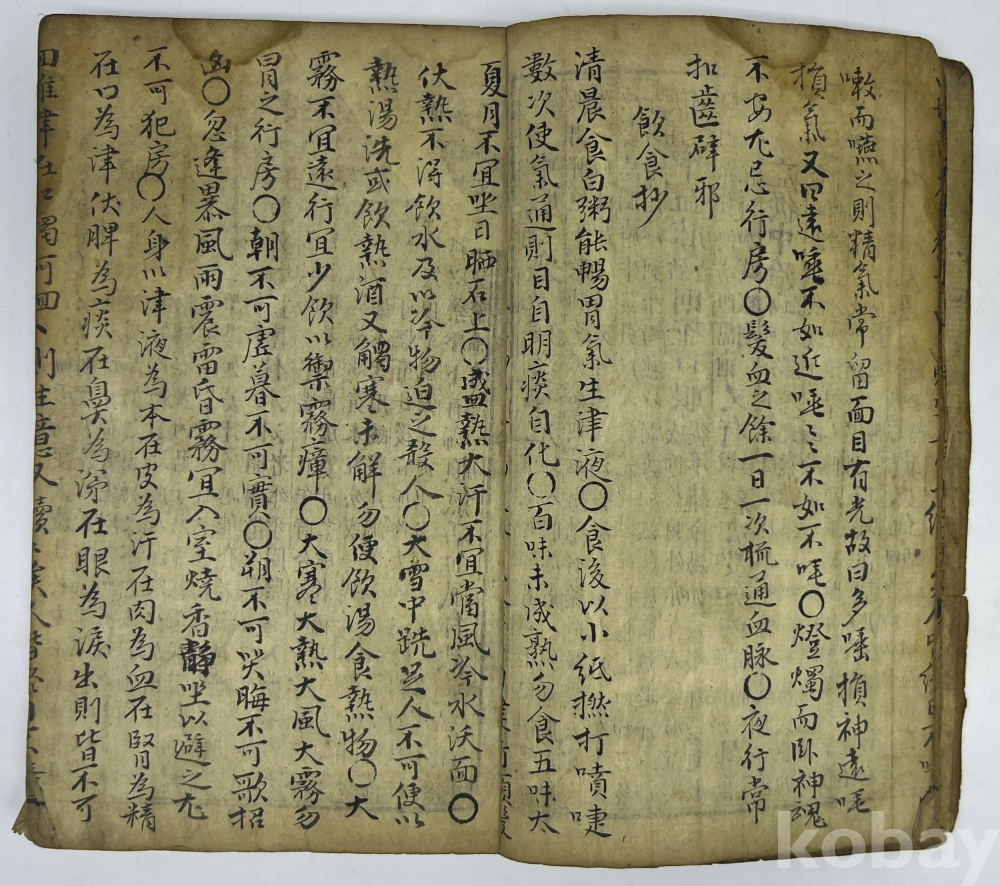 嗽而嚥之則精氣常留面目有光故曰多唾損神遠唾
損氣又曰遠唾不如近唾〻不如不唾〇燈燭而臥神魂
不安尤忌行房〇髮血之餘一日一次梳通血脉〇夜行常
扣齒辟邪
飮食抄
清晨食白粥能暢胃氣生津液〇食後以小紙撚打噴嚏
數次使氣通則目自明痰自化〇百味未成熟勿食五味太
夏月不宜坐日晒石上〇盛熱大汗不宜當風冷水沃面〇
伏熱不淂飮水及以冷物迫之殺人〇大雪中跣足人不可便以
熱湯洗或飮熱酒又觸寒未解勿便飮湯食熱物〇大
霧不宜遠行宜少飮以禦霧瘴〇大寒大熱大風大霧勿
冒之行房〇朝不可虛暮不可實〇朔不可哭晦不可歌招
凶〇忽逢暴風雨震雷昏霧宜入室燒香靜坐以避之尤
不可犯房〇人身以津液為本在皮為汗在肉為血在腎為精
在口為津伏脾為痰在鼻為涕在眼為淚出則皆不可